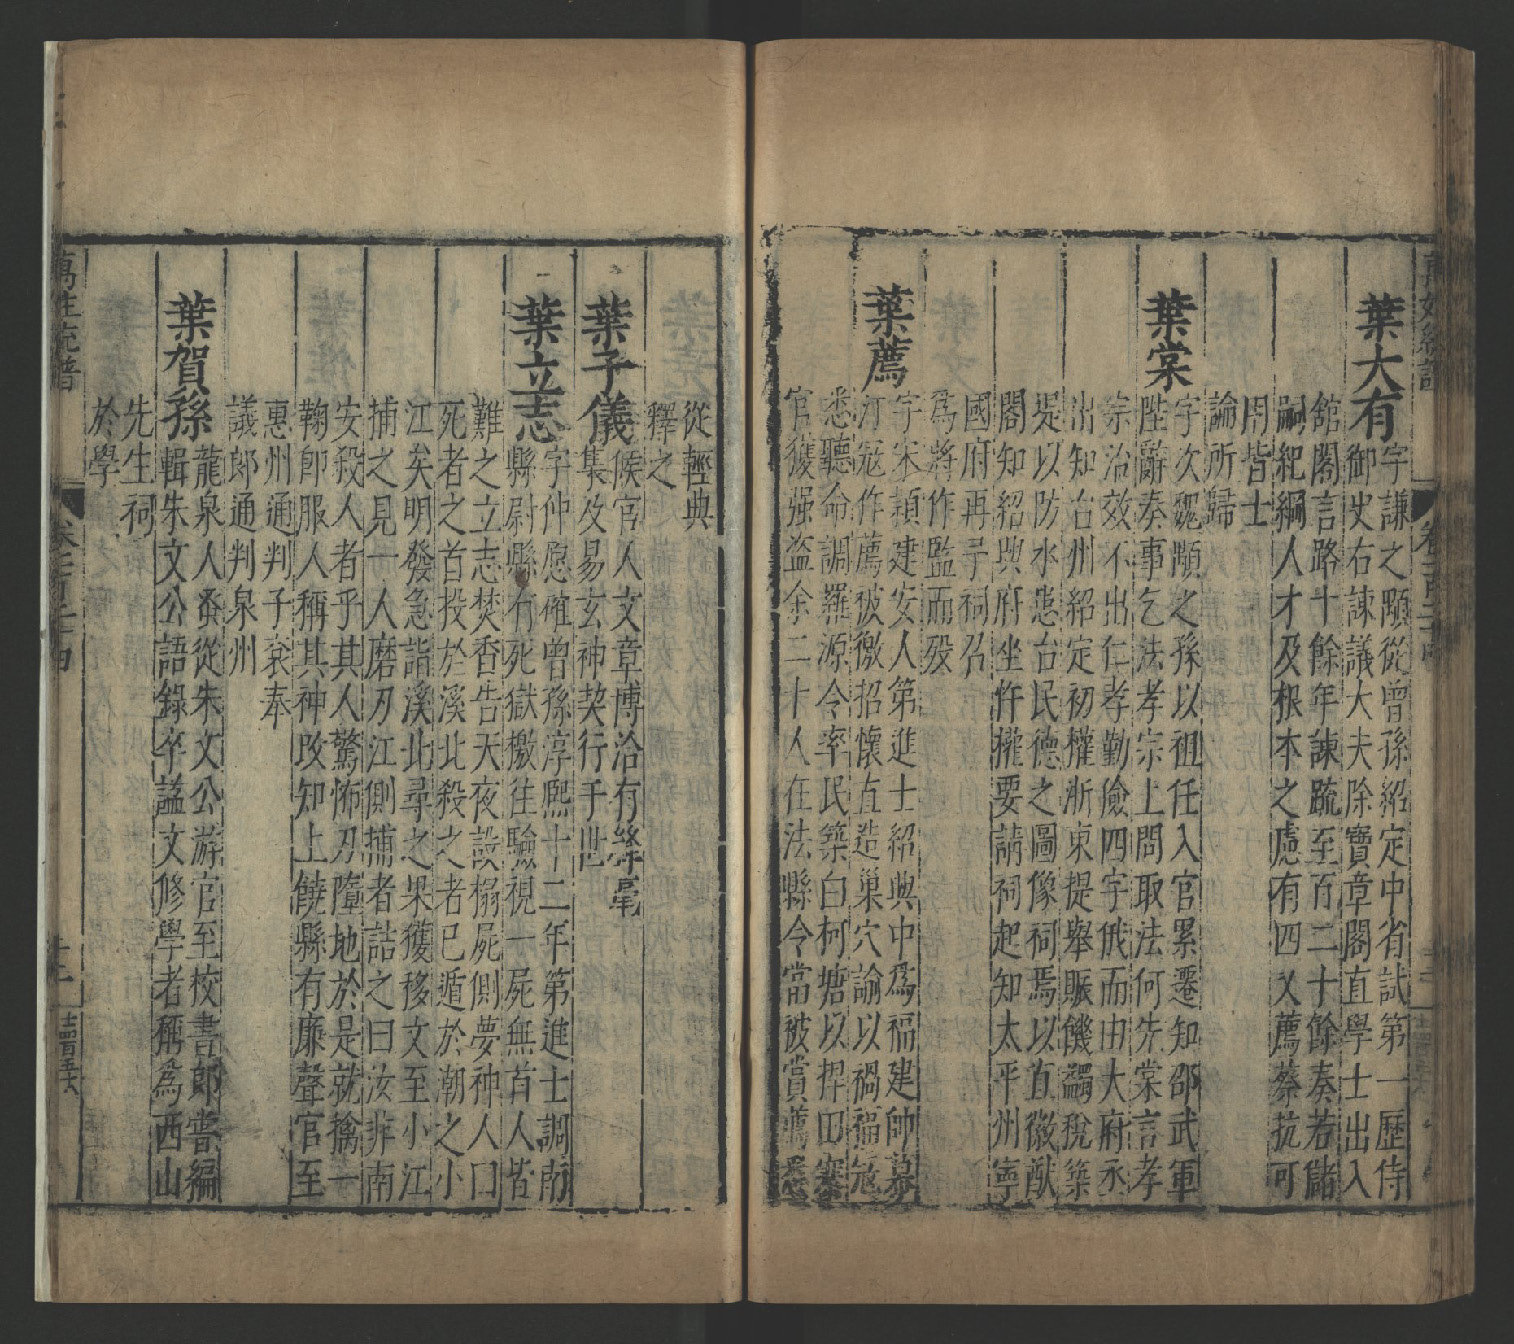 葉大有字謙之顒從曾孫紹定中省試第一歷侍
御史右諫議大夫除寶章閣直學士出入
館閣言路十餘年諫疏至百二十餘奏若儲
嗣紀綱人才及根本之慮有四又薦蔡抗可
用皆士
論所歸
葉棠字次魏顒之孫以祖任入官累遷知邵武軍
陛辭奏事乞法孝宗上問取法何先棠言孝
宗治效不出仁孝勤儉四字俄而由大府丞
出知台州紹定初擢浙東提舉賑饑蠲稅築
堤以防水患台民德之圖像祠焉以直徽猷
閣知紹興府坐忤權要請祠起知太平州寧
國府再予祠召
為將作監而歿
葉薦字宋穎建安人第進士紹興中為福建帥幕
汀寇作薦被檄招懷直造巢穴諭以禍福寇
悉聽命調羅源令率民築白柯塘以捍田寨
官獲强盗余二十人在法縣令當被賞薦悉
從輕典
釋之
葉子儀候官人文章博洽有絳亳
集及易玄神契行于世
葉立志字仲愿確曾孫淳熙十二年第進士調南
縣尉縣有死獄檄往驗視一屍無首人皆
難之立志焚香告天夜設榻屍側夢神人曰
死者之首投於溪北殺之者已遁於潮之小
江矣明發急詣溪北尋之果獲移文至小江
捕之見一人磨刀江側捕者詰之曰汝非南
安殺人者乎其人驚怖刀墮地於是就擒一
鞫卽服人稱其神攺知上饒縣有廉聲官至
惠州通判子袞奉
議郎通判泉州
葉賀孫龍泉人蚤從朱文公游官至校書郎嘗編
輯朱文公語錄卒謚文修學者稱為西山
先生祠
於學
萬姓統譜
卷一百二十四